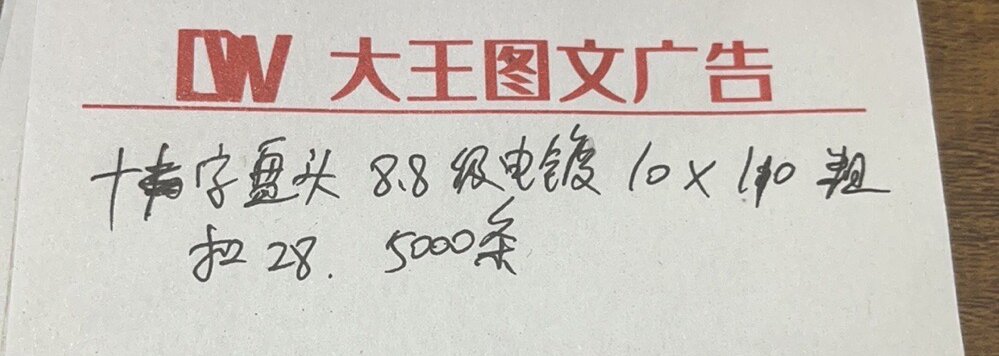 DW 大王图文广告
十字盘头 8.8级电镀 10×110 粗
扣 28. 5000条